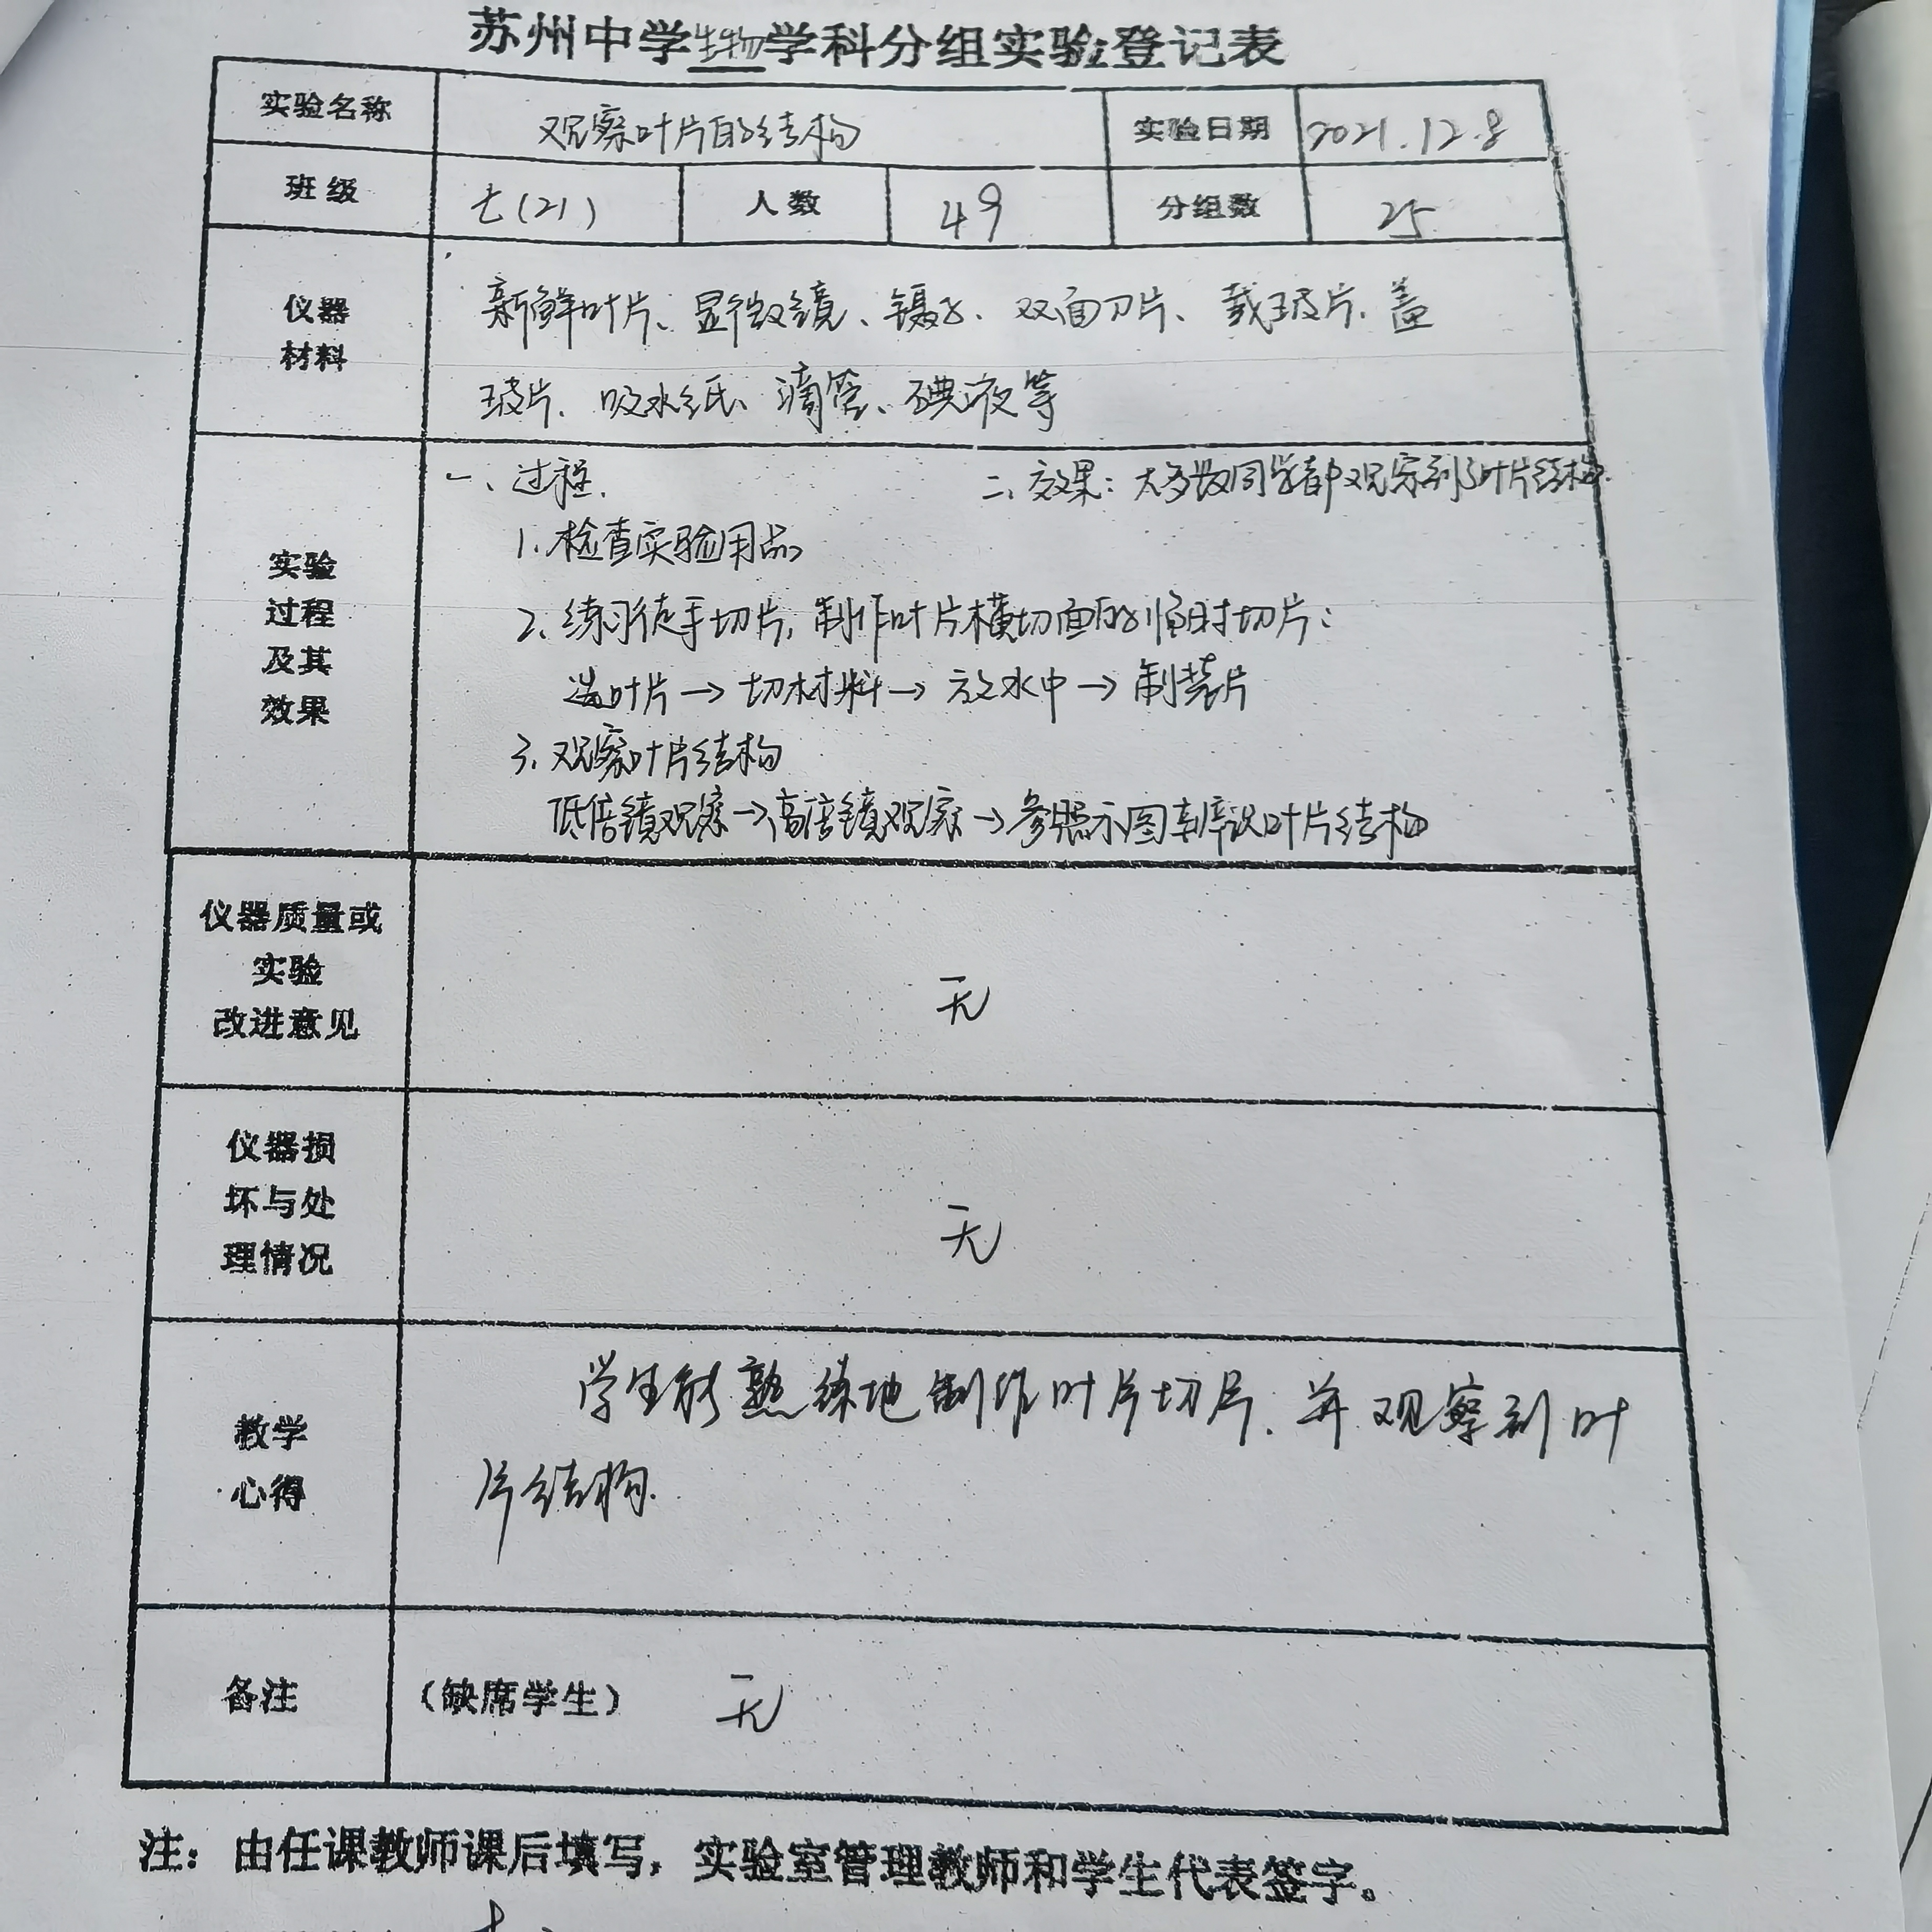 苏州中学生物学科分组实验登记表
实验名称 观察叶片的结构 实验日期 2021.12.8
班级 七(21) 人数 49 分组数 25
仪器
材料
新鲜叶片、显微镜、镊子、双面刀片、载玻片、盖
玻片、吸水纸、滴管、碘液等
实验
过程
及其
效果
一、过程.
二、效果：大多数同学都观察到了叶片结构.
1.检查实验用品
2.练习徒手切片,制作叶片横切面的临时切片：
选叶片→切材料→放水中→制装片
3.观察叶片结构
低倍镜观察→高倍镜观察→参照示图辨识叶片结构
仪器质量或
实验
改进意见
无
仪器损
坏与处
理情况
无
教学
心得
学生能熟练地制作叶片切片.并观察到叶
片结构.
备注 (缺席学生) 无
注：由任课教师课后填写，实验室管理教师和学生代表签字。